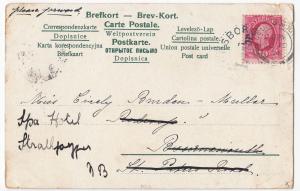 please forward
Brefkort - Brev-Kort.
Carte Postale.
Correspondenzkarte
Dopisnice
Karta korespondencyjna
Briefkaart
Weltpostverein
Postkarte.
ОТКРЫТОЕ ПИСЬМО
Dopisnica
Levelező-Lap
Cartolina postale.
Union postale universelle
Post card
Miss Emily Burden - Muller
Spa Hotel
Strathpeffer
Bournemouth
St. Peters Road
NB